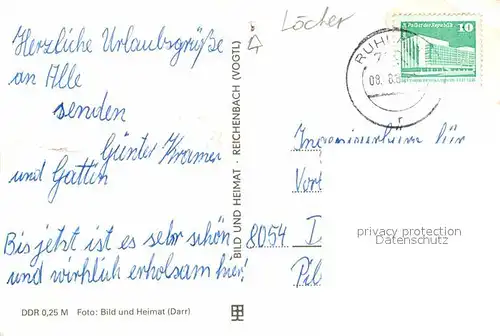 Löcher
Herzliche Urlaubsgrüße
an Alle
senden
Günter Kramer
und Gattin
Bis jetzt ist es sehr schön
und wirklich erholsam hier!
DDR 0,25 M Foto: Bild und Heimat (Darr)
BILD UND HEIMAT · REICHENBACH (VOGTL)
RUHL
08. 8.
10
für
8054
privacy protection
Datenschutz